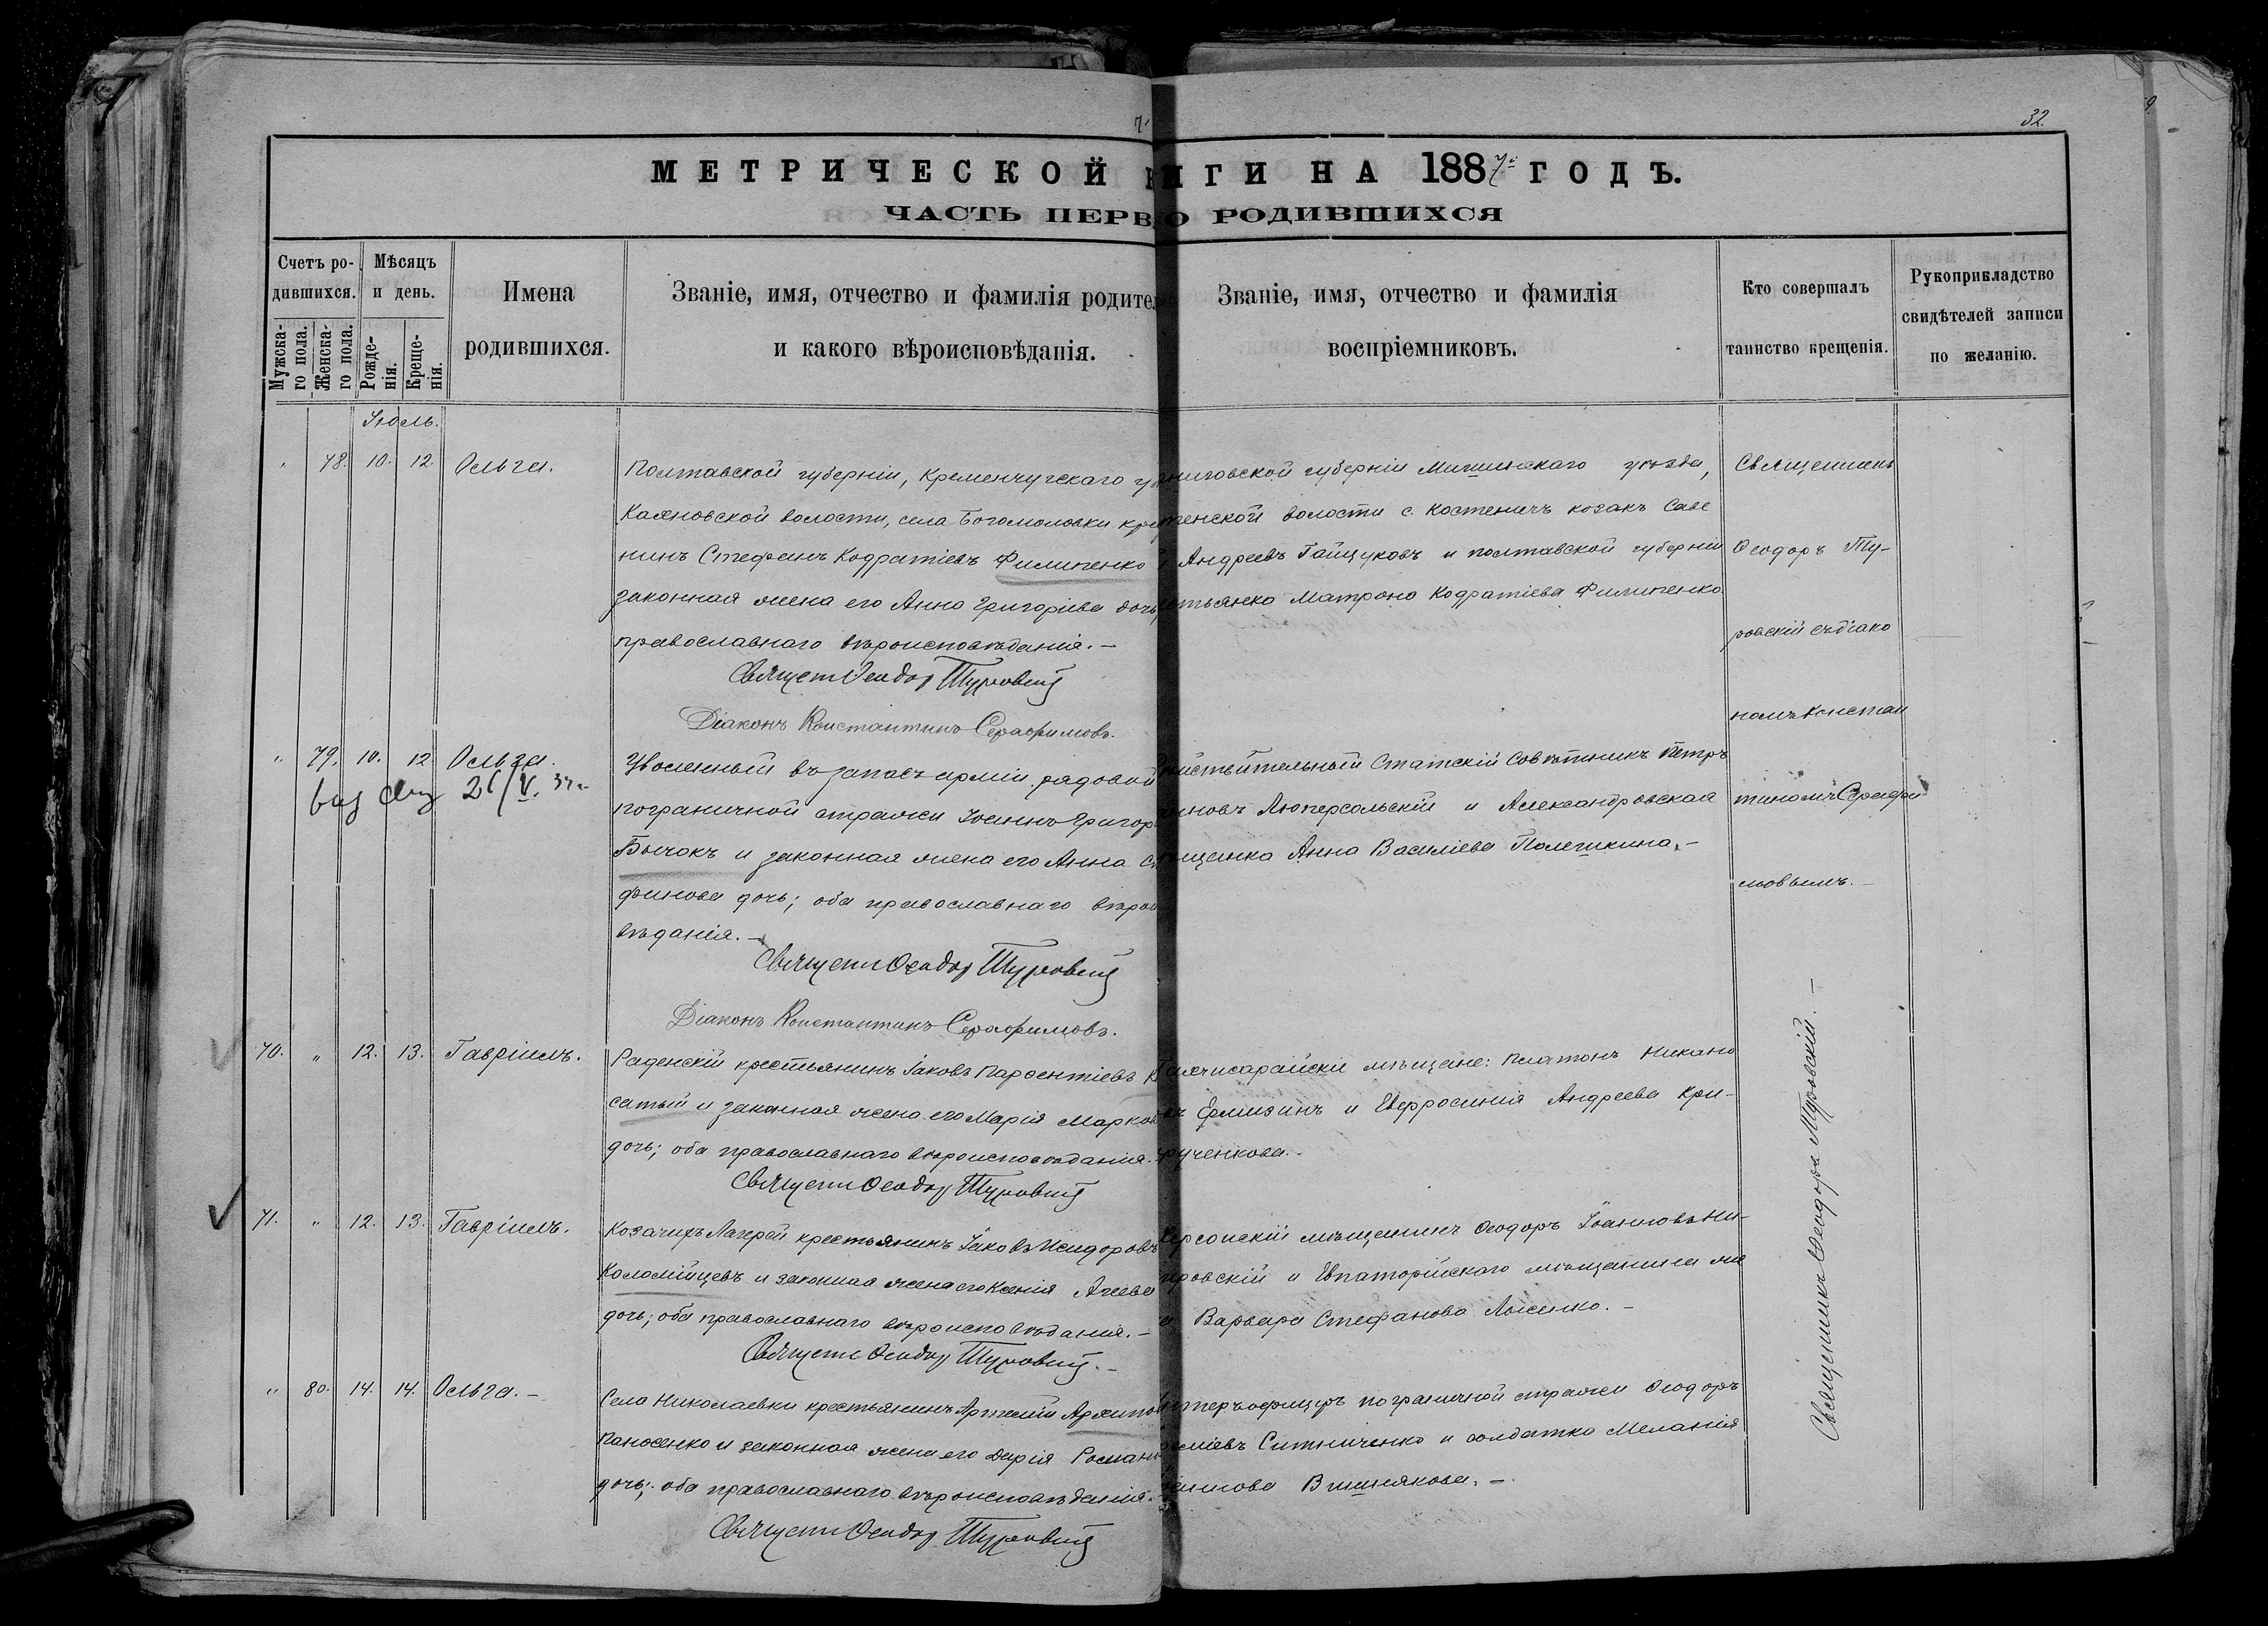 32.
МЕТРИЧЕСКОЙ КНИГИ НА 1887й ГОДЪ.
ЧАСТЬ ПЕРВ О РОДИВШИХСЯ
Счетъ ро-
дившихся.
Мужска-
го пола.
Женска-
го пола.
Мѣсяцъ
и день.
Рожде-
нія.
Креще-
нія.
Имена
родившихся.
Званіе, имя, отчество и фамилія родител
и какого вѣроисповѣданія.
Званіе, имя, отчество и фамилія
воспріемниковъ.
Кто совершалъ
таинство крещенія.
Рукоприкладство
свидѣтелей записи
по желанію.
Іюль.
" 78. 10. 12. Ольга.
Полтавской губерніи, Кременчугскаго у
волости, села Богомоловки кре
нинъ Стефанъ Кодратіевъ Филипенко
законная жена его Анна Григоріева дочь
православнаго вѣроисповѣданія. –
Священ Ѳеодоръ Туровскій
Діаконъ Константинъ Серафимовъ.
ниговской губерніи уѣзда,
тенской волости с. Костеничъ козакъ Саве
Андреевъ Гайщуковъ и полтавской губерніи
стьянка Матрона Кодратіева Филипенко
Священникъ
Ѳеодоръ Ту-
ровскій съ діако
номъ Констан
тиномъ Серафи
мовымъ. –
" 79. 10. 12 Ольга.
21/V.
Уволенный въ запасъ арміи рядовой
пограничной стражи Іоаннъ Григор
Бычокъ и законная жена его Анна С
финова дочь; оба православнаго вѣрои
вѣданія. –
Священ Ѳеодоръ Туровскій
Діаконъ Константинъ Серафимовъ.
йствительный Статскій Совѣтникъ Петръ
новъ Люперсольскій и Александровская
щанка Анна Василіева Полешкина. –
70. " 12. 13. Гавріилъ.
Раденскій крестьянинъ Іаковъ Парѳентіевъ
сатый и законная жена его Марія Марков
дочь; оба православнаго вѣроисповѣданія.
Священ Ѳеодоръ Туровскій
хчисарайскіе мѣщане: Платонъ Никано
въ Ермизинъ и Евфросинія Андреева Кри-
рученкова. –
71. " 12. 13. Гавріилъ.
Козачихъ Лагерей крестьянинъ Іаковъ Исидоровъ
Коломійцевъ и законная жена его Ксенія Агеева
дочь; оба православнаго вѣроисповѣданія. –
Священ Ѳеодоръ Туровскій. –
Херсонскій мѣщанинъ Ѳеодоръ Іоанновъ Ни-
ровскій и Евпаторійскаго мѣщанина же
а Варвара Стефанова Лысенко. –
" 80. 14. 14. Ольга. –
Села Николаевки крестьянинъ Артемій Архипов
Паносенко и законная жена его Дарія Романо
дочь; оба православнаго вѣроисповѣданія.
Священ Ѳеодоръ Туровскій
нтеръ-офицеръ пограничной стражи Ѳеодоръ
силіевъ Ситниченко и солдатка Меланія
Вишнякова. –
Священникъ Ѳеодоръ Туровскій. –